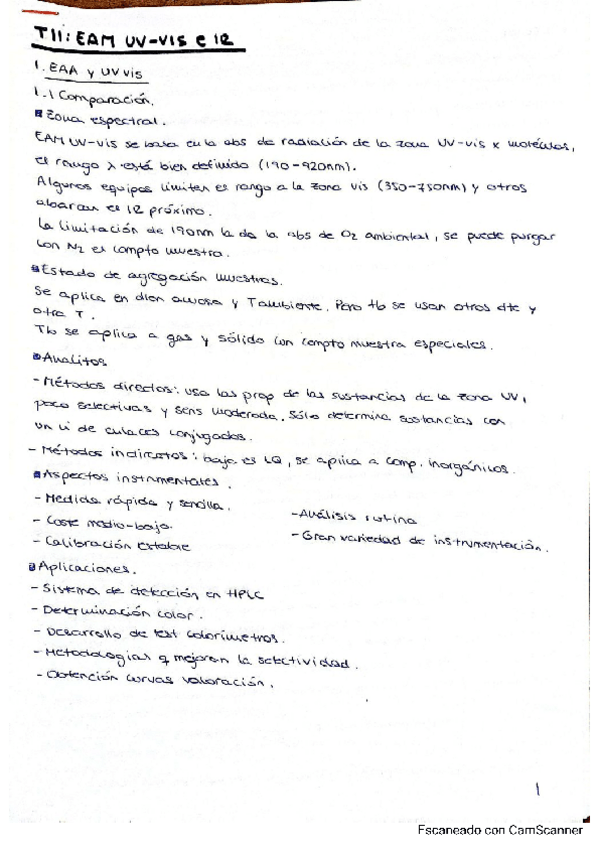 T11: EAM UV-VIS e IR
1. EAA y UV vis
1.1 Comparación.
Zona espectral.
EAM UV-vis se basa en la abs de radiación de la zona UV-vis x moléculas,
el rango λ está bien definido (190-920nm).
Algunos equipos limitan el rango a la zona vis (350-750nm) y otros
abarcan el IR próximo.
La limitación de 190nm la da la abs de O2 ambiental, se puede purgar
con N2 el compto muestra.
Estado de agregación muestras.
Se aplica en dion acuosa y Tambiente. Pero tb se usan otros dte y
otra T.
Tb se aplica a gas y sólido con compto muestra especiales.
Analitos
- Métodos directos: usa las prop de las sustancias de la zona UV,
poco selectivas y sens moderada. Sólo determina sustancias con
un nº de enlaces conjugados.
- Métodos indirectos: baja el LQ, se aplica a comp. inorgánicos.
Aspectos instrumentales.
- Medida rápida y sencilla.
- Coste medio-bajo.
- Calibración estable
- Análisis rutina
- Gran variedad de instrumentación.
Aplicaciones.
- Sistema de detección en HPLC
- Determinación color.
- Desarrollo de test colorimetros.
- Metodologías q mejoren la selectividad.
- Obtención curvas valoración.
1
Escaneado con CamScanner